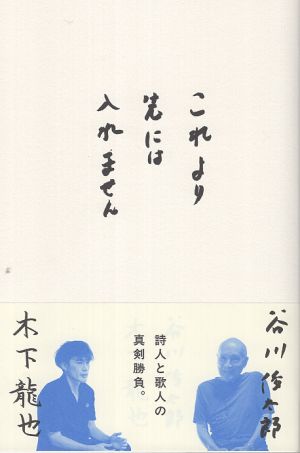 これより
先には
入れません
谷川俊太郎
詩人と歌人の
真剣勝負。
木下龍也